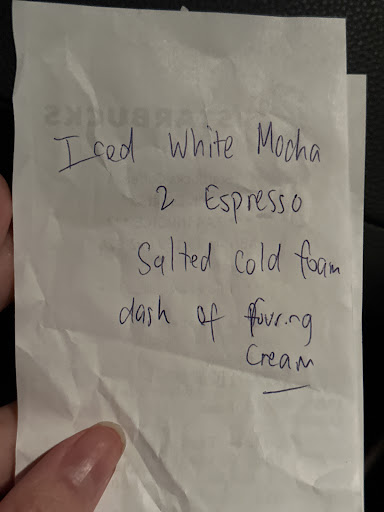 STARBUCKS
Iced White Mocha
2 Espresso
Salted cold foam
dash of pouring
Cream